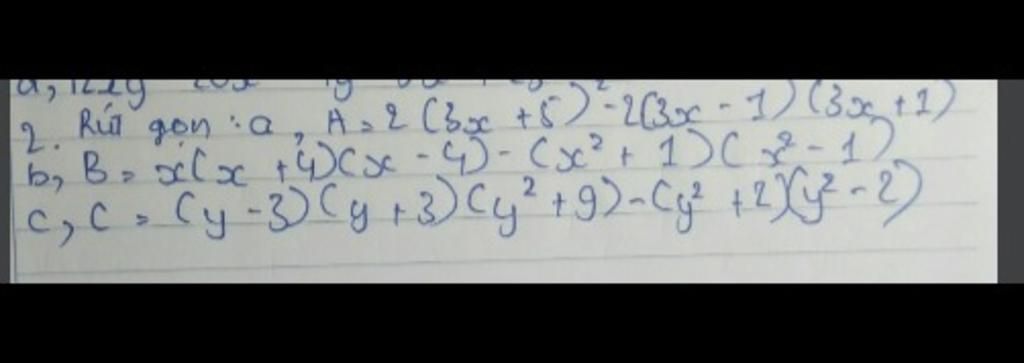 2. Rút gọn : a, A = 2 (3x + 5)² - 2(3x - 1) (3x + 1)
b, B = x(x + 4)(x - 4) - (x² + 1)(x² - 1)
c, C = (y - 3)(y + 3)(y² + 9) - (y² + 2)(y² - 2)